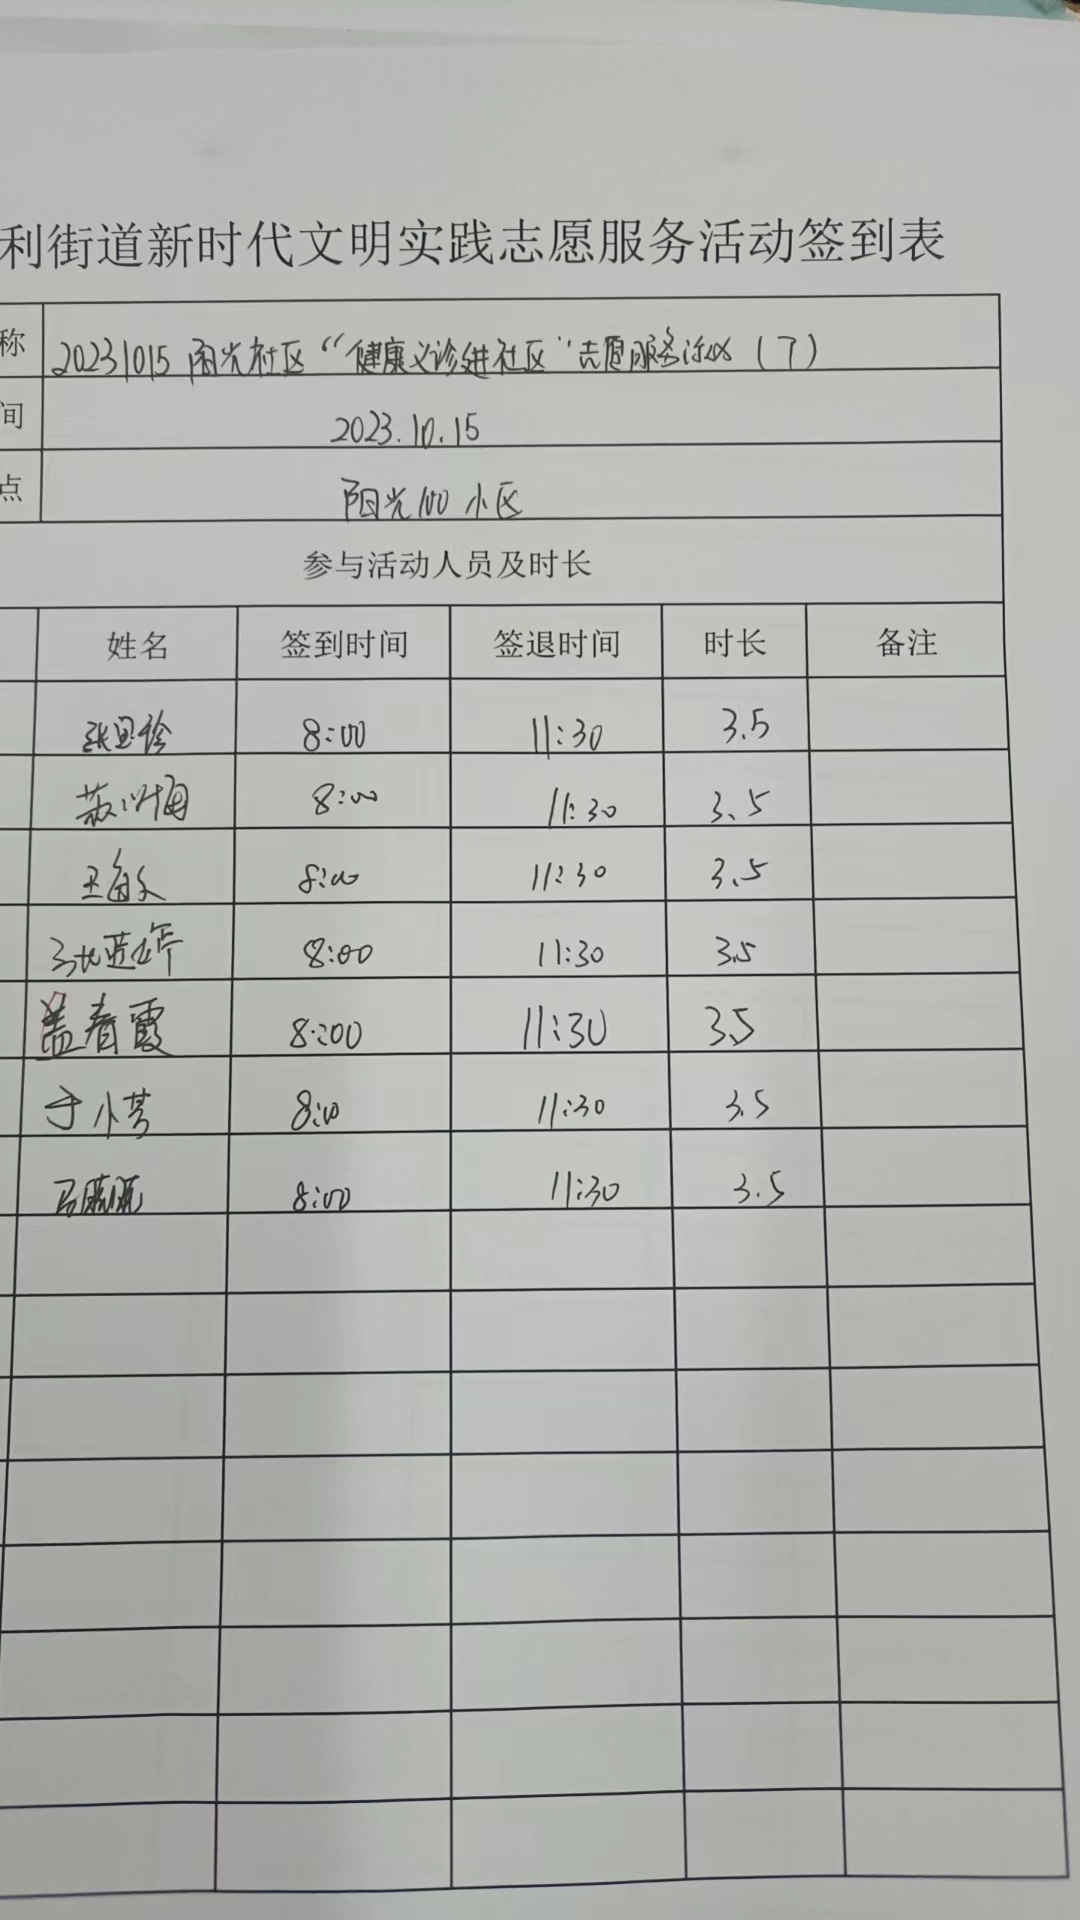 利街道新时代文明实践志愿服务活动签到表
称 20231015 阳光社区“健康义诊进社区”志愿服务活动（7）
间 2023.10.15
点 阳光100小区
参与活动人员及时长
姓名 签到时间 签退时间 时长 备注
8:00 11:30 3.5
苏 梅 8:00 11:30 3.5
王 8:00 11:30 3.5
8:00 11:30 3.5
盖春霞 8:00 11:30 3.5
于小芹 8:00 11:30 3.5
马 8:00 11:30 3.5